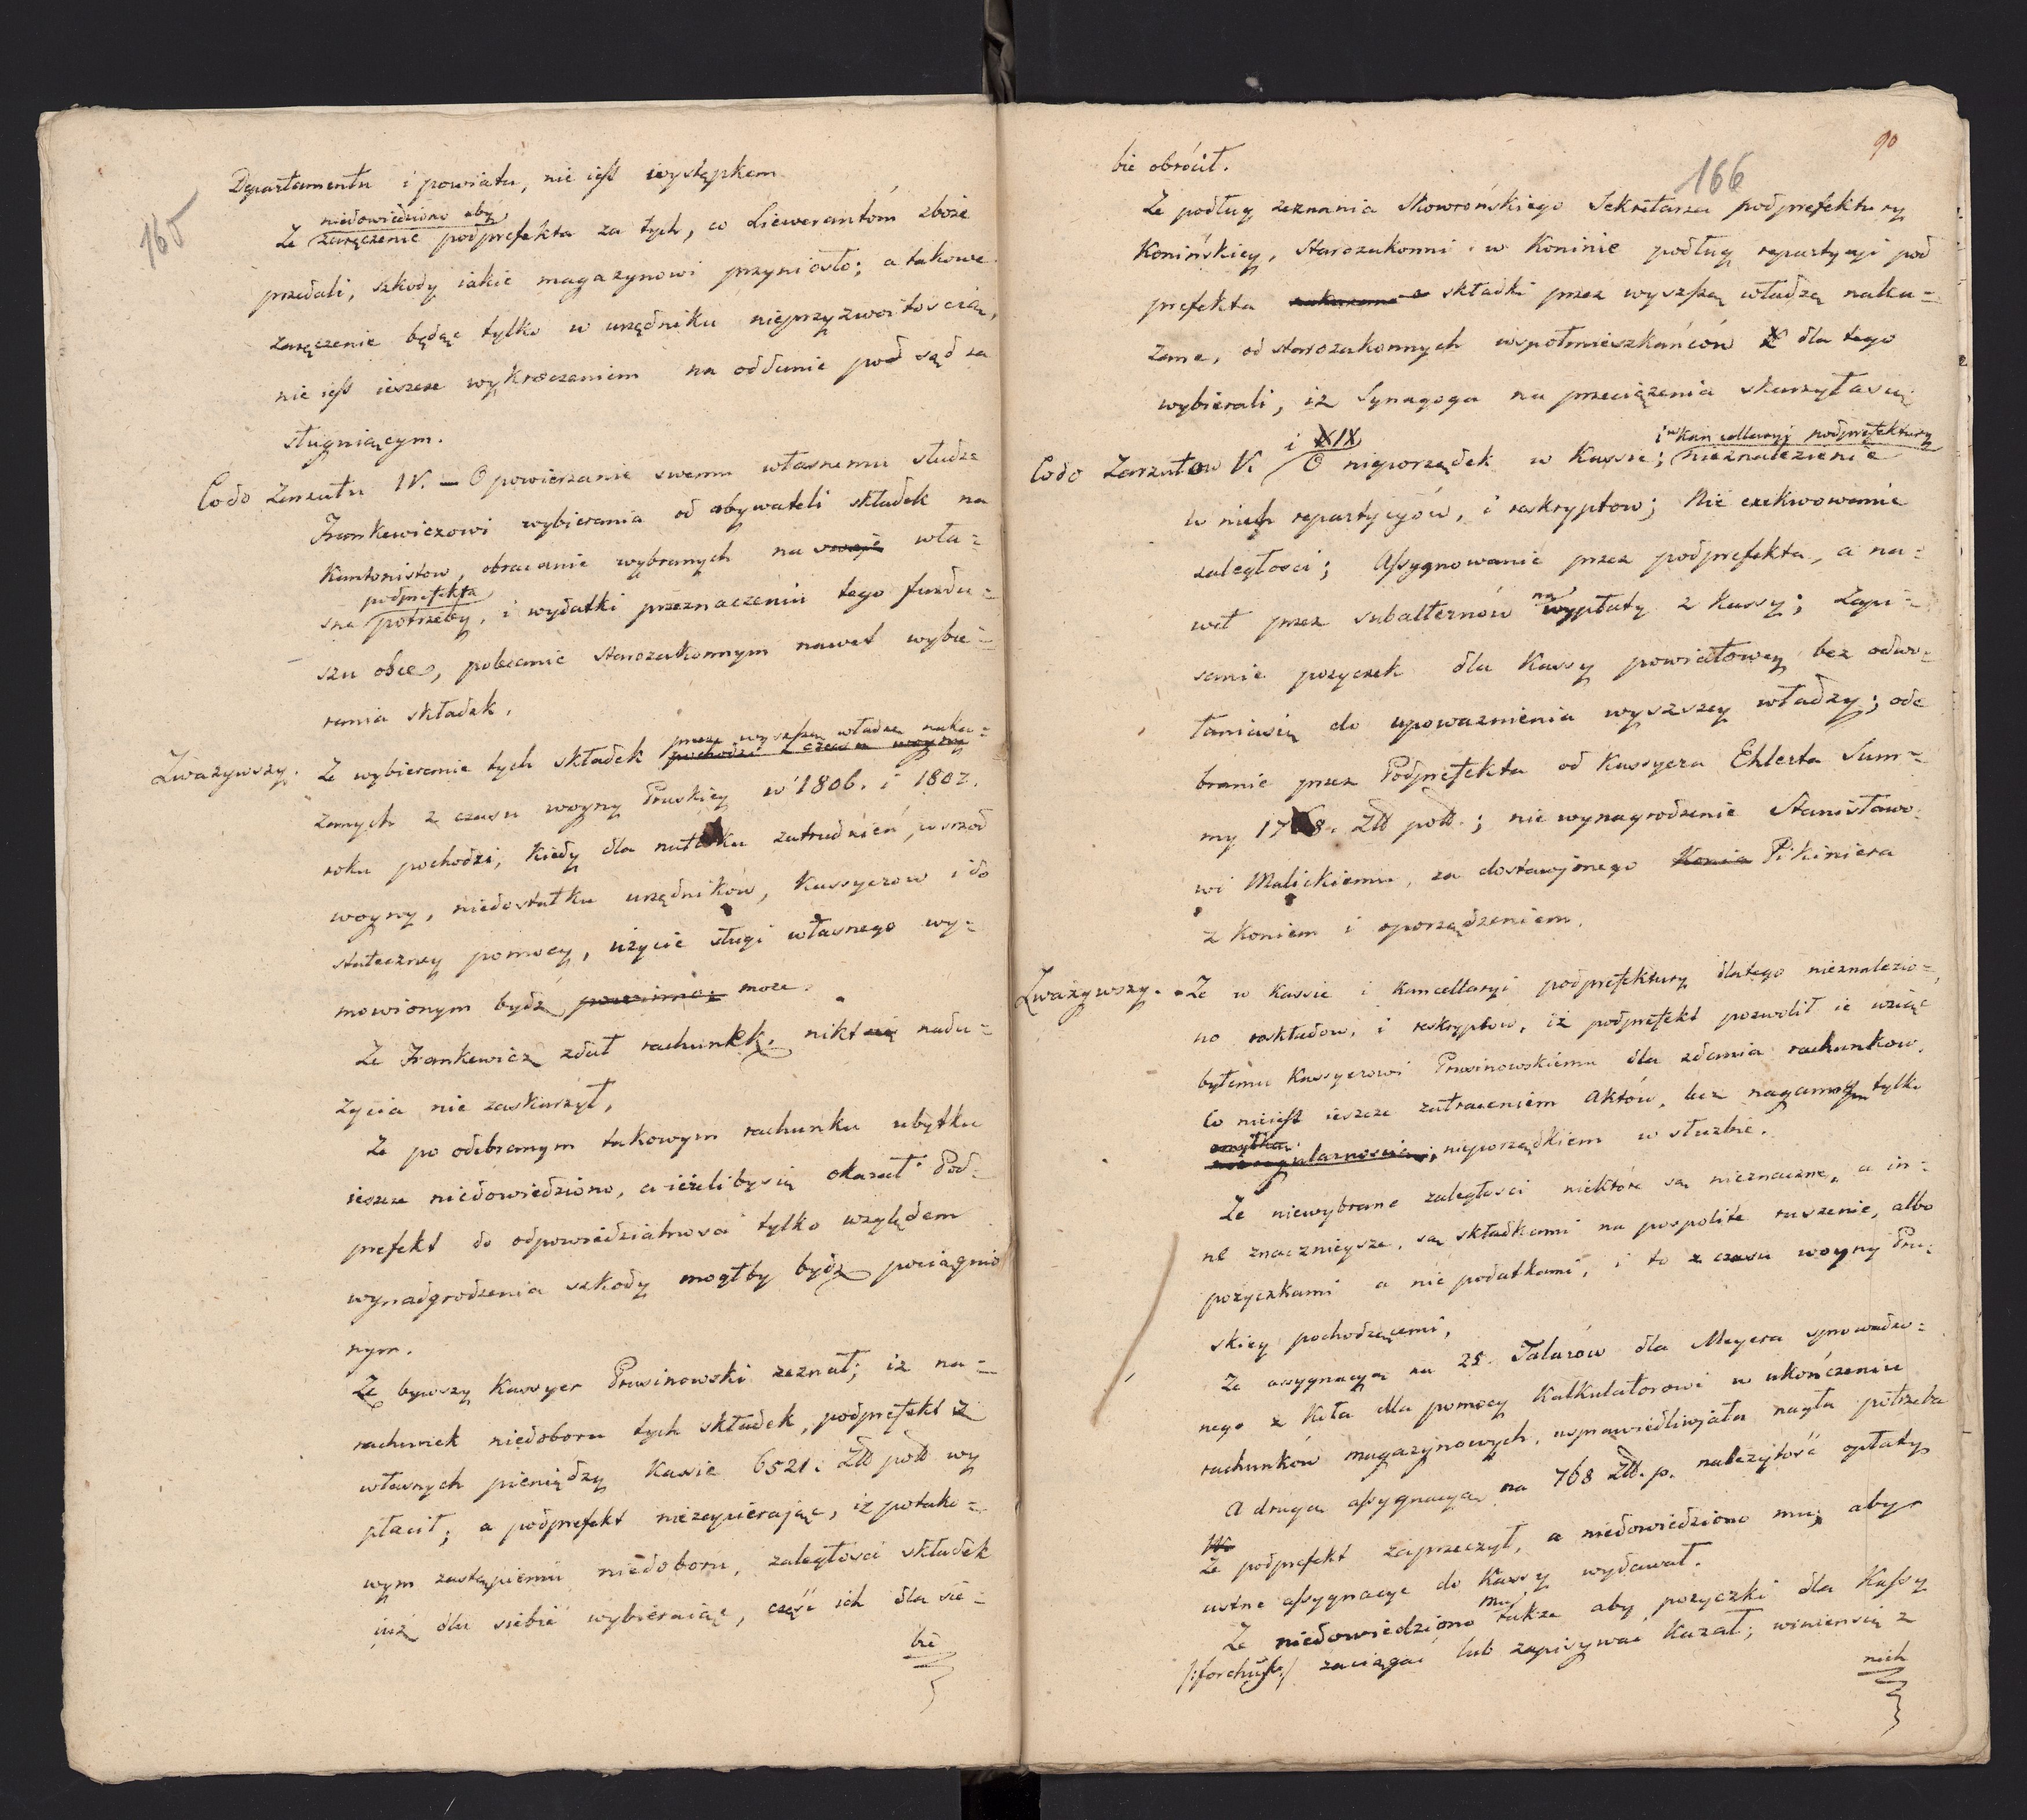 165
Departamentu i powiatu, nie iest występkem
niedowiedziono aby
Ze zaręczenie podprefekta za tych, co Liewerantóm zboże
przedali, szkody iakie magazynowi przyniosło; a takowe
zaręczenie będąc tylko w urzędniku nieprzyzwoitoscią,
nie iest ieszcze wykroczeniem na oddanie pod sąd za
sługuiącym.
Codo Zarzutu IV. – O powierzanie swemu własnemu słudze
Frankewiczowi wybierania od obywateli składek na
Kantonistow, obracanie wybranych na swoje wła=
podprefekta
sne potrzeby, i wydatki przeznaczeniu tego fundu=
szu obce, polecanie starozakonnym nawet wybie=
rania składek.
przez wyszszą władze naka=
Zważywszy. Ze wybieranie tych składek pochodzi z czasu woyny
zanych z czasu woyny Pruskiey w 1806. i 1807.
roku pochodzi, kiedy dla natłoku zatrudnień, wsrzod
woyny, niedostatku urzędników, Kassyerow i do
stateczney pomocy, użycie sługi własnego wy=
mowionym bydź powinno może.
Ze Frankewicz zdał rachunek, nikt się nadu=
życia nie zaskarżył,
Ze po odebranym takowym rachunku ubytku
ieszcze niedowiedziono, a ieżeliby się okazał Pod=
prefekt do odpowiedzialnosci tylko względem
wynadgrodzenia szkody mogłby bydź pociągnio
nym.
Ze bywszy Kassyer Prusinowski zeznał; iz na=
rachunek niedoboru tych składek, podprefekt z
własnych pieniędzy Kassie 6521. Złł poll wy
płacił; a podprefekt niezapierając, iz potako=
wym zastąpieniu niedoboru, zaległosci składek
iuż dla siebie wybieraiąc, część ich dla sie=
bie
90
166
bie obrócił.
Ze podług zeznania Skowrońskiego Sekretarza podprefektury
Konińskiey, starozakonni w Koninie podług repartycyi pod
prefekta składki przez wyszszą władzą naka=
zane, od starozakonnych wspołmieszkańcow dla tego
wybierali, iz Synagoga na przeciążenia skarzyła się.
i XIX i w kancellaryi podprefektury
Codo Zarzutow V. O nieporządek w Kassie; nieznalezienie
w nich repartycyów, i reskryptow; Nie exekwowanie
zaległosci; Assygnowanie przez podprefekta, a na=
na
wet przez subalternów wypłaty z Kassy; Zapi=
sanie pożyczek dla Kassy powiatowey bez odwo=
łania się do upoważnienia wyzszey władzy; ode
branie przez Podprefekta od Kassyera Ehlerta Sum=
my 1768. Złł poll.; nie wynagrodzenie Stanisławo
wi Malickiemu, za dostawionego Konia Pikiniera
z koniem i oporządzeniem.
Zważywszy. Ze w Kassie i Kancellaryi podprefektury dlatego nieznalezio=
no rozkładow, i reskryptow, iż podprefekt pozwolił ie wziąć
byłemu Kassyerowi Prusinowskiemu dla zdania rachunkow.
Co nieiest ieszcze zatraceniem Aktów, lecz nagannym tylko
omyłką
nieregularnoscią, nieporządkiem w służbie.
Ze niewybrane zaległosci niektóre są nieznaczne, a in=
ne znacznieysze, są składkami na pospolite ruszenie, albo
pożyczkami a nie podatkami, i to z czasu woyny Pru=
skiey pochodzącemi,
Ze assygnacyą na 25. Talarów dla Meyera sprowadzo=
nego z Koła dla pomocy Kalkulatorowi w ukończeniu
rachunków magazynowych, usprawiedliwiała nagła potrzeba
A drugą assygnacyą na 768 Złł. p. należytość opłaty
Ze podprefekt zaprzeczył, a niedowiedziono mu, aby
ustne assygnacye do Kassy wydawał.
mu
Ze niedowiedziono także aby pożyczki dla Kassy
zaciągać lub zapisywać kazał; winien się z
nich